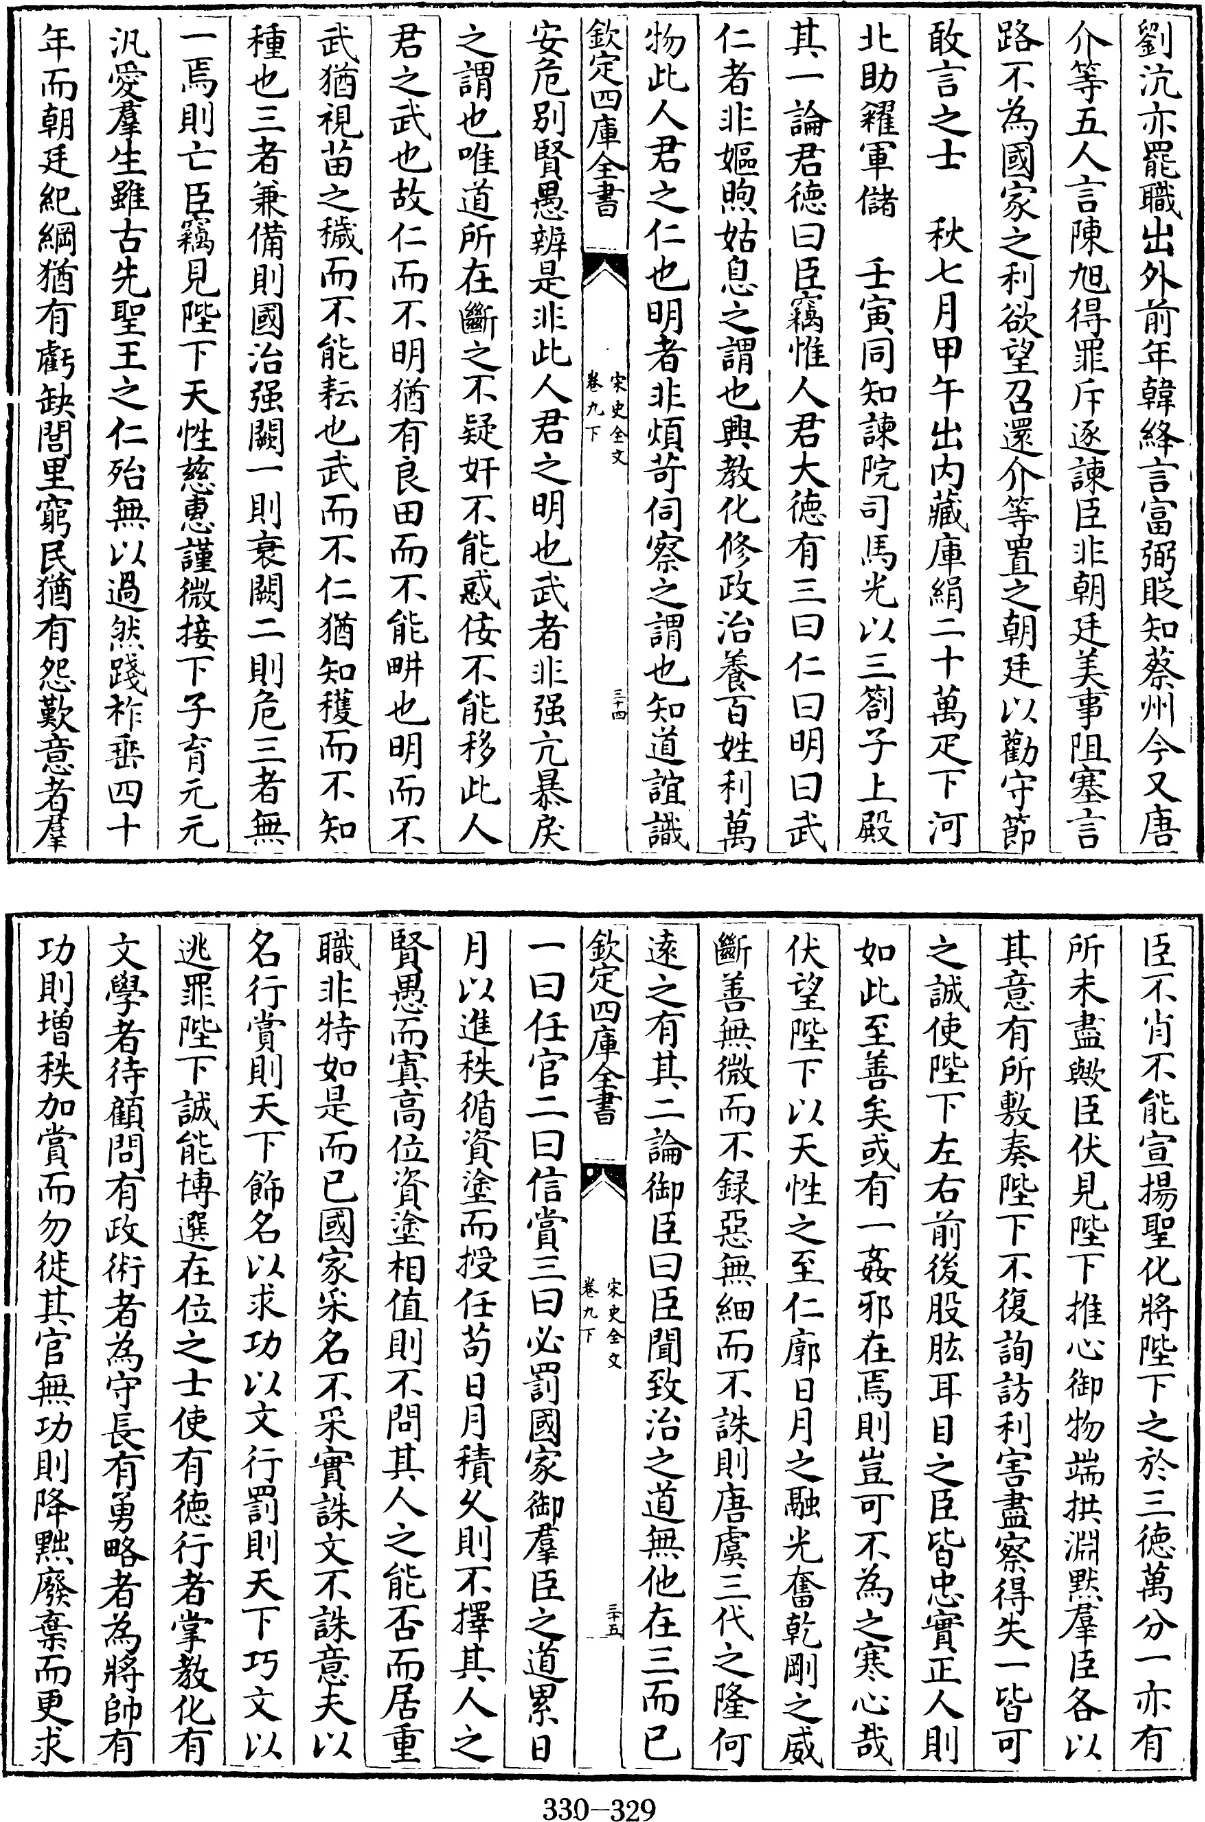 劉沆亦罷職出外前年韓絳言富弼貶知蔡州今又唐
介等五人言陳旭得罪斥逐諫臣非朝廷美事阻塞言
路不為國家之利欲望召還介等置之朝廷以勸守節
敢言之士　秋七月甲午出内藏庫絹二十萬疋下河
北助糴軍儲　壬寅同知諫院司馬光以三劄子上殿
其一論君德曰臣竊惟人君大德有三曰仁曰明曰武
仁者非嫗煦姑息之謂也興教化修政治養百姓利萬
物此人君之仁也明者非煩苛伺察之謂也知道誼識
欽定四庫全書
宋史全文
卷九下
三十四
安危别賢愚辨是非此人君之明也武者非强亢暴戾
之謂也唯道所在斷之不疑奸不能惑佞不能移此人
君之武也故仁而不明猶有良田而不能畊也明而不
武猶視苗之穢而不能耘也武而不仁猶知穫而不知
種也三者兼備則國治强闕一則衰闕二則危三者無
一焉則亡臣竊見陛下天性慈恵謹微接下子育元元
汎愛羣生雖古先聖王之仁殆無以過然踐祚垂四十
年而朝廷紀綱猶有虧缺閭里窮民猶有怨歎意者羣
臣不肖不能宣揚聖化將陛下之於三德萬分一亦有
所未盡歟臣伏見陛下推心御物端拱淵黙羣臣各以
其意有所敷奏陛下不復詢訪利害盡察得失一皆可
之誠使陛下左右前後股肱耳目之臣皆忠實正人則
如此至善矣或有一姦邪在焉則豈可不為之寒心哉
伏望陛下以天性之至仁廓日月之融光奮乾剛之威
斷善無微而不録惡無細而不誅則唐虞三代之隆何
逺之有其二論御臣曰臣聞致治之道無他在三而已
欽定四庫全書
宋史全文
卷九下
三十五
一曰任官二曰信賞三曰必罰國家御羣臣之道累日
月以進秩循資塗而授任苟日月積久則不擇其人之
賢愚而寘高位資塗相值則不問其人之能否而居重
職非特如是而已國家采名不采實誅文不誅意夫以
名行賞則天下飾名以求功以文行罰則天下巧文以
逃罪陛下誠能博選在位之士使有德行者掌教化有
文學者待顧問有政術者為守長有勇略者為將帥有
功則增秩加賞而勿徙其官無功則降黜廢棄而更求
330-329